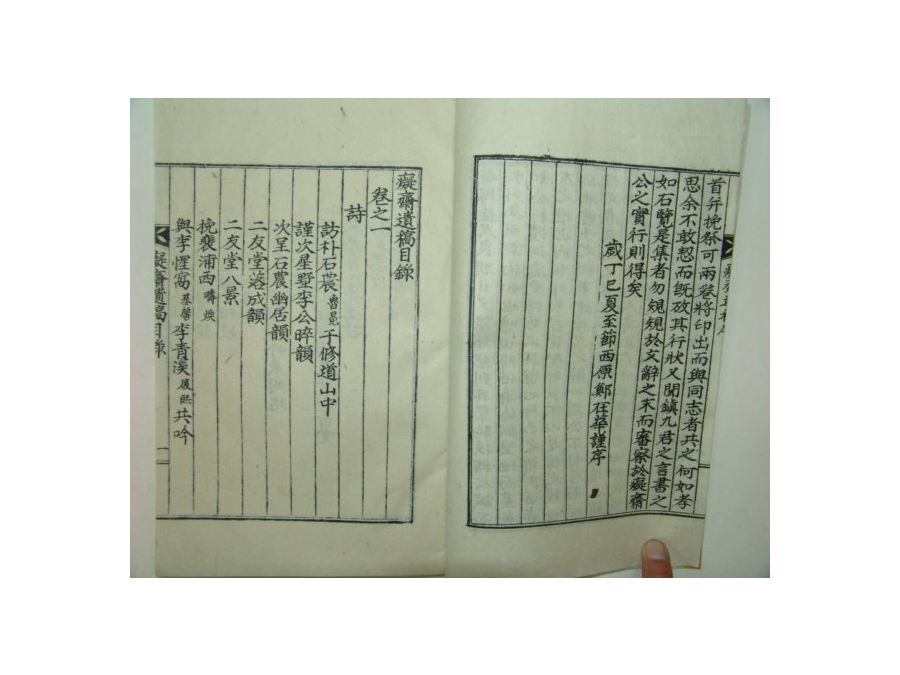 首弁挽祭可兩卷將印出而與同志者共之何如孝
思余不敢恝而旣攷其行狀又聞鎭九君之言書之
如右覽是集者勿規規於文辭之末而審察於癡齋
公之實行則得矣
歲丁巳夏至節西原鄭在華謹序
癡齋遺稿目錄
卷之一
詩
訪朴石農魯晃于修道山中
謹次星墅李公晬韻
次呈石農幽居韻
二友堂落成韻
二友堂八景
挽裵浦西疇煥
與李惺窩基馨李青溪後 共吟
癡齋遺稿目錄
一